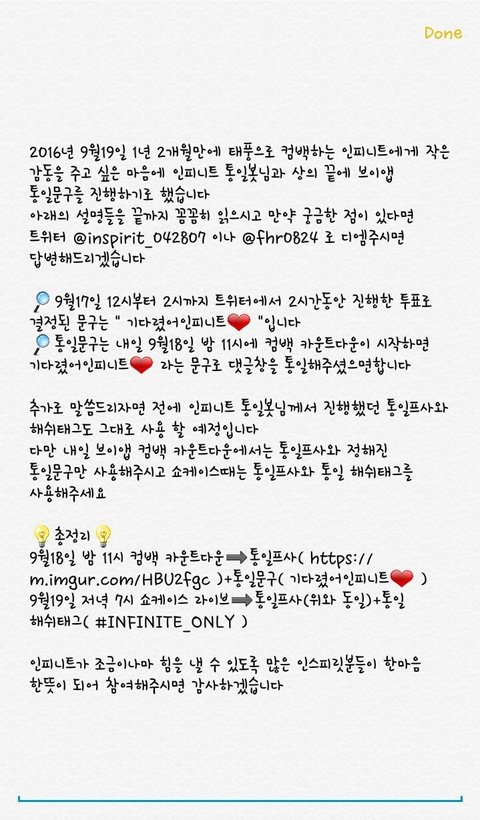 Done
2016년 9월19일 1년 2개월만에 태풍으로 컴백하는 인피니트에게 작은
감동을 주고 싶은 마음에 인피니트 통일봇님과 상의 끝에 브이앱
통일문구를 진행하기로 했습니다
아래의 설명들을 끝까지 꼼꼼히 읽으시고 만약 궁금한 점이 있다면
트위터 @inspirit_042807 이나 @fhr0824 로 디엠주시면
답변해드리겠습니다
🔎9월17일 12시부터 2시까지 트위터에서 2시간동안 진행한 투표로
결정된 문구는 " 기다렸어인피니트❤️ "입니다
🔎통일문구는 내일 9월18일 밤 11시에 컴백 카운트다운이 시작하면
기다렸어인피니트❤️ 라는 문구로 댓글창을 통일해주셨으면합니다
추가로 말씀드리자면 전에 인피니트 통일봇님께서 진행했던 통일프사와
해쉬태그도 그대로 사용 할 예정입니다
다만 내일 브이앱 컴백 카운트다운에서는 통일프사와 정해진
통일문구만 사용해주시고 쇼케이스때는 통일프사와 통일 해쉬태그를
사용해주세요
💡총정리💡
9월18일 밤 11시 컴백 카운트다운➡통일프사( https://
m.imgur.com/HBU2fgc )+통일문구( 기다렸어인피니트❤️ )
9월19일 저녁 7시 쇼케이스 라이브➡통일프사(위와 동일)+통일
해쉬태그( #INFINITE_ONLY )
인피니트가 조금이나마 힘을 낼 수 있도록 많은 인스피릿분들이 한마음
한뜻이 되어 참여해주시면 감사하겠습니다